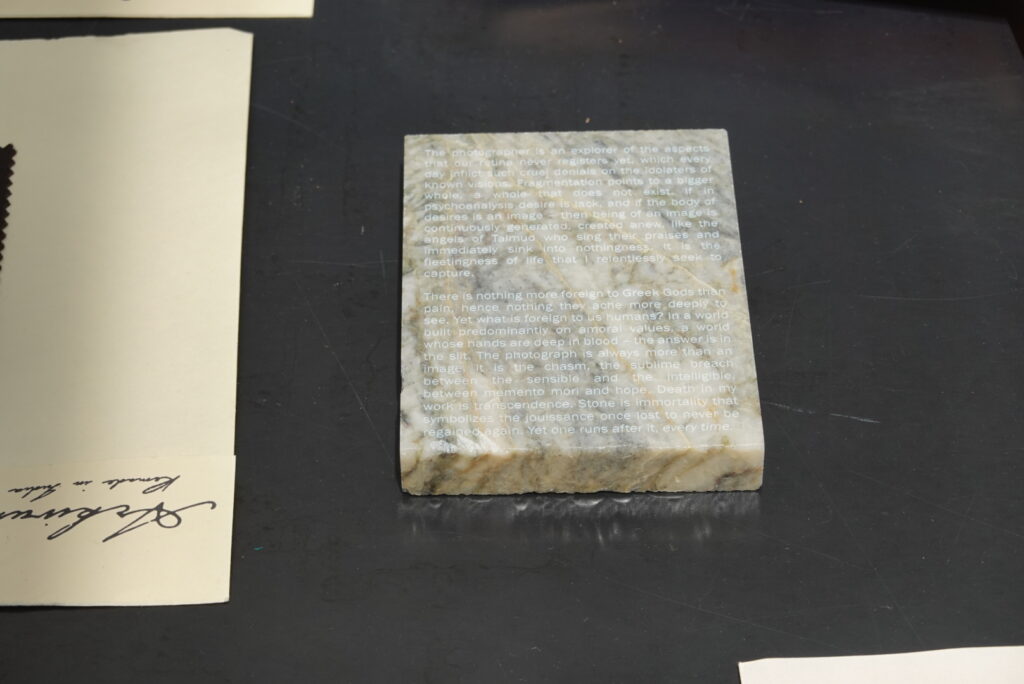 The photographer is an explorer of the aspects
that our retina never registers yet, which every
day inflict such cruel denials on the idolaters of
known visions. Fragmentation points to a bigger
whole, a whole that does not exist. If in
psychoanalysis desire is lack, and if the body of
desires is an image – then being of an image is
continuously generated, created anew, like the
angels of Talmud who sing their praises and
immediately sink into nothingness. It is the
fleetingness of life that I relentlessly seek to
capture.
There is nothing more foreign to Greek Gods than
pain, hence nothing they ache more deeply to
see. Yet what is foreign to us humans? In a world
built predominantly on amoral values, a world
whose hands are deep in blood – the answer is in
the slit. The photograph is always more than an
image, it is the chasm, the sublime breach
between the sensible and the intelligible,
between memento mori and hope. Death in my
work is transcendence. Stone is immortality that
symbolizes the jouissance once lost to never be
regained again. Yet one runs after it, every time.
Remade in India